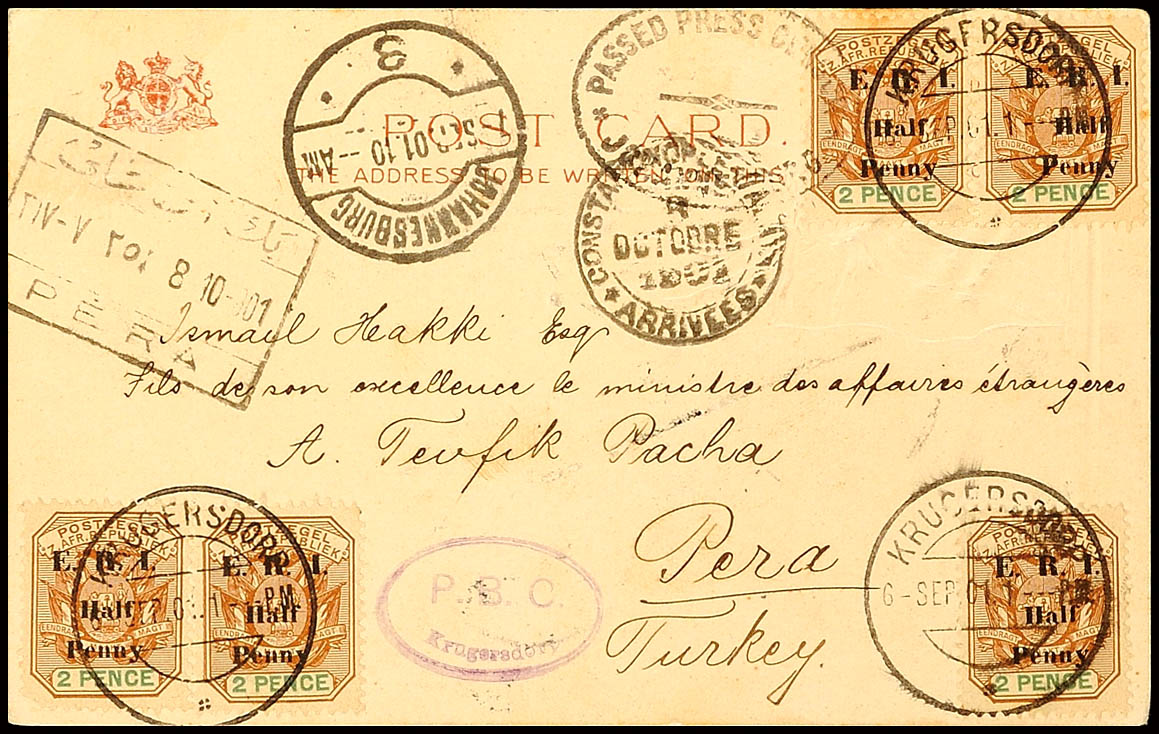 POST CARD.
THE ADDRESS TO BE WRITTEN ON THIS
3
7 SEP.01.10--AM
JOHANNESBURG
PASSED PRESS
CONSTANTINOPLE
OCTOBRE
1901
ARRIVEES
8 10-901
PERA
POSTZEGEL
Z.AFR.REPUBLIEK
E. R. I.
Half
Penny
EENDRAGT MAAKT MAGT
2 PENCE
POSTZEGEL
Z.AFR.REPUBLIEK
E. R. I.
Half
Penny
2 PENCE
KRUGERSDORP
SEP.01.1
Ismail Hakki Esq
Fils de son excellence le ministre des affaires étrangères
A. Tevfik Pacha
Pera
Turkey.
POSTZEGEL
Z.AFR.REPUBLIEK
E. R. I.
Half
Penny
2 PENCE
POSTZEGEL
Z.AFR.REPUBLIEK
E. R. I.
Half
Penny
2 PENCE
KRUGERSDORP
SEP.01.1--PM
P.B.C.
Krugersdorp
KRUGERSDORP
6-SEP.01.1--PM
POSTZEGEL
Z.AFR.REPUBLIEK
E. R. I.
Half
Penny
2 PENCE